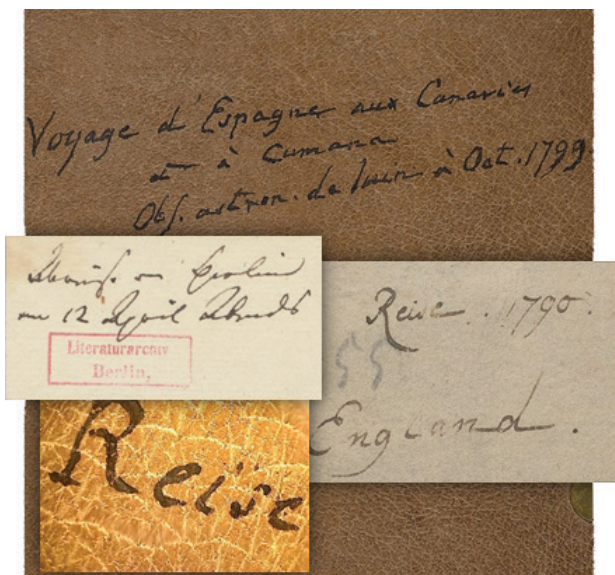 Voyage d'Espagne aux Canaries
et à Cumana
Obs. astron. de Juin à Oct. 1799.
Abreise v. Berlin
am 12 April Abends
Literaturarchiv
Berlin.
Reise. 1790.
55
England.
Reise